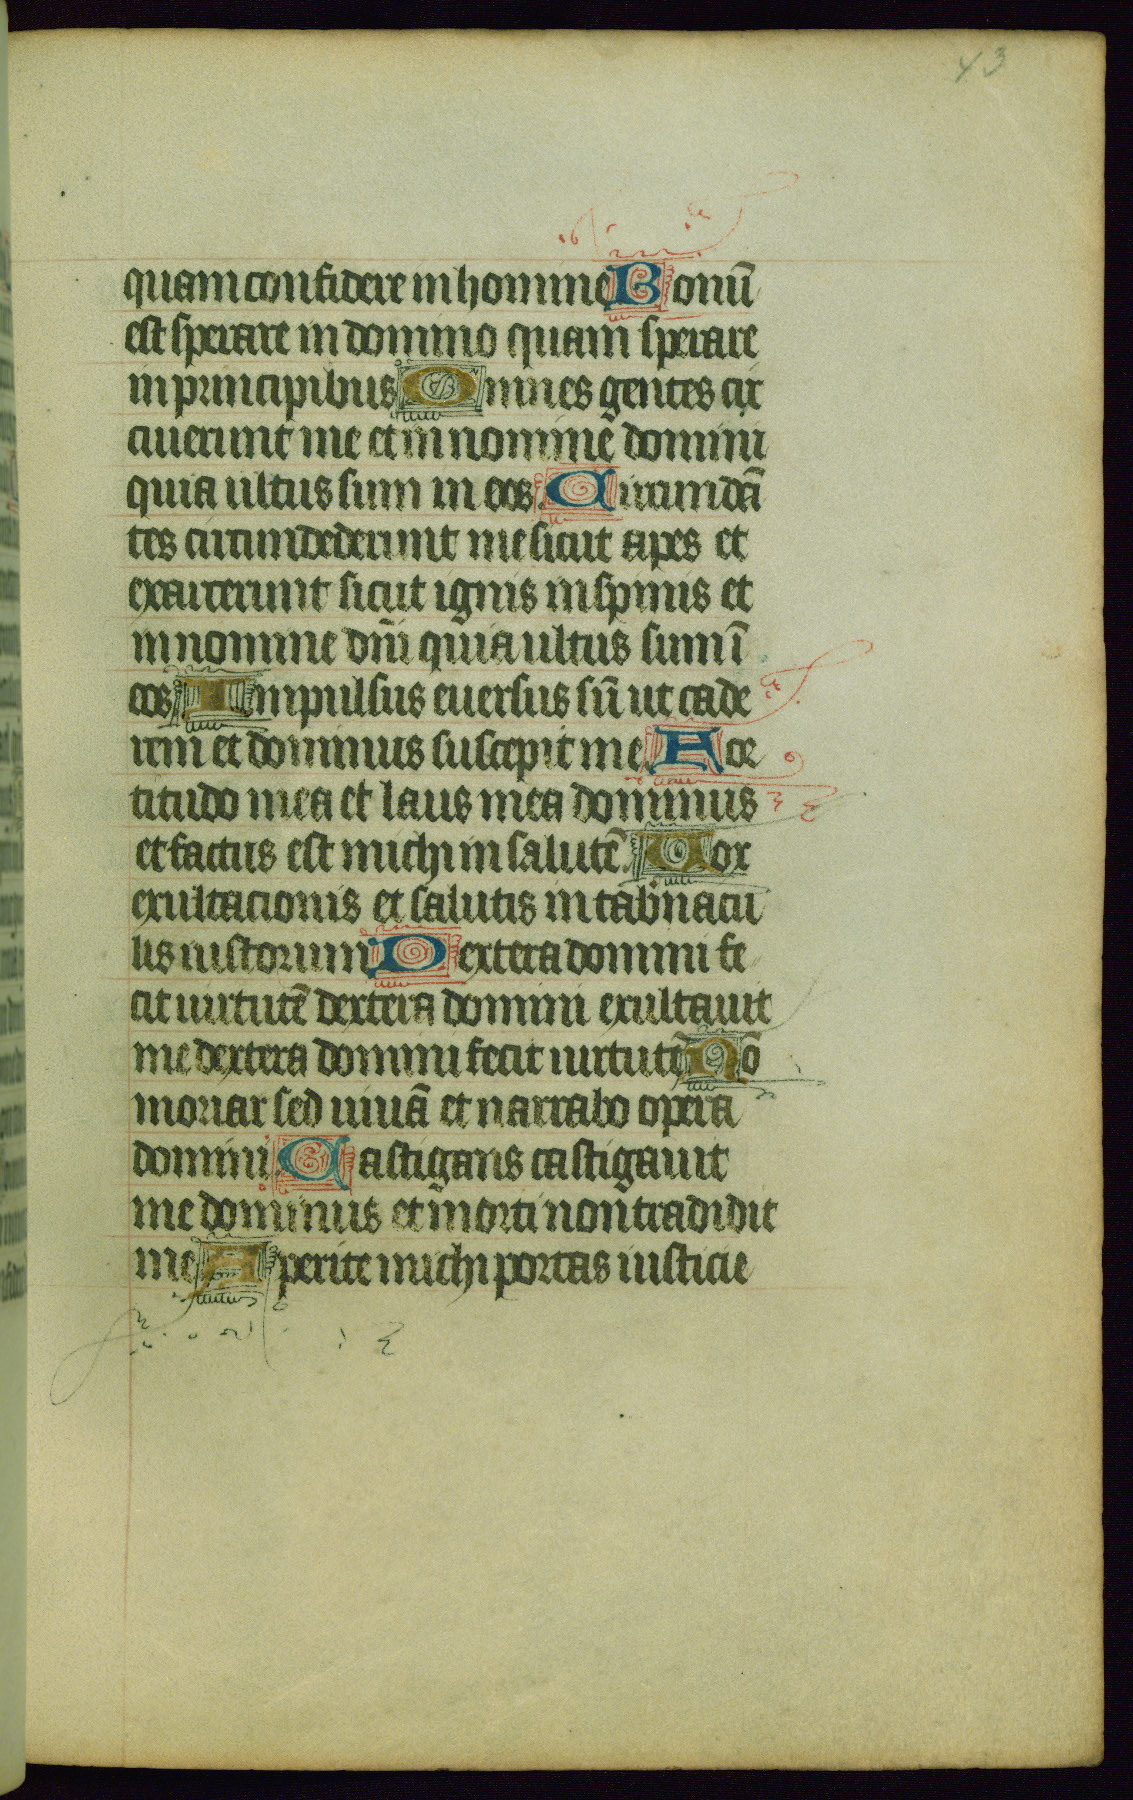 43
quam confidere in homine Bonū
est sperare in domino quam sperare
in principibus Omnes gentes cir
cuierunt me et in nomine domini
quia ultus sum in eos. Circumdā
tes circumdederunt me sicut apes et
exarcerunt sicut ignis in spinis et
in nomine dn̄i quia ultus sum ī
eos Impulsus euersus sū ut cade
rem et dominus suscepit me. For
titudo mea et laus mea dominus
et factus est michi in salutē. Uox
exultacionis et salutis in tab̄nacu
lis iustorum Dextera domini fe
cit uirtutē dextera domini exultauit
me dextera domini fecit uirtutē Nō
moriar sed uiuā et narrabo opera
domini. Castigans castigauit
me dominus et morti non tradidit
me Aperite michi portas iusticie